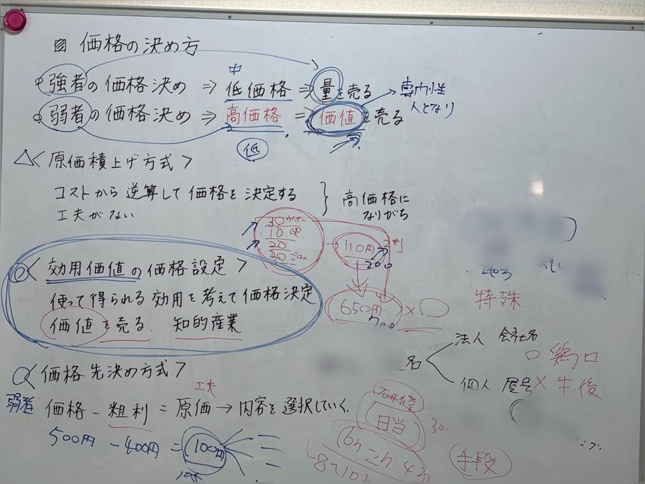 価格の決め方
強者の価格決め ⇒ 低価格 ⇒ 量を売る
中
弱者の価格決め ⇒ 高価格 = 価値を売る
低
専門性
人となり
△<原価積上げ方式>
コストから逆算して価格を決定する
工夫がない
} 高価格に
なりがち
30
10
20
30
110円
200
650円 ×
○<効用価値の価格設定>
使って得られる効用を考えて価格決定
価値を売る 知的産業
特殊
名
法人 会社名
○鶏口
個人 屋号 × 牛後
○<価格先決め方式>
工夫
弱者 価格 − 粗利 = 原価 → 内容を選択していく
500円 − 400円 = 100円
日当
30
6h 2h 4h
手段